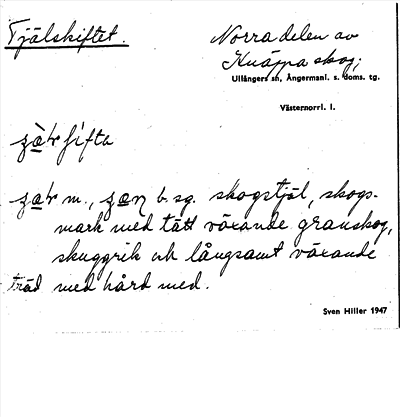 Tjälskiftet.
Norra delen av
Knäppa skog;
Ullångers sn, Ångermanl. s. doms. tg.
Västernorrl. l.
m., b. sg. skogstjäl, skogs-
mark med tätt växande granskog,
skuggrik och långsamt växande
träd med hård ved.
Sven Hiller 1947